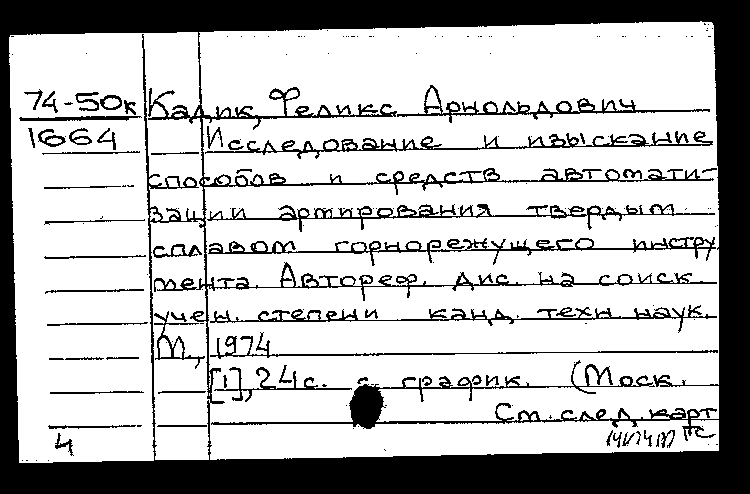 74-50к Кадик, Феликс Арнольдович
1664 Исследование и изыскание
способов и средств автомати-
зации армирования твердым
сплавом горнорежущего инстру
мента. Автореф. дис. на соиск.
учен. степени канд. техн. наук.
М., 1974
[1], 24 с. с график. (Моск.
См. след. карт
4